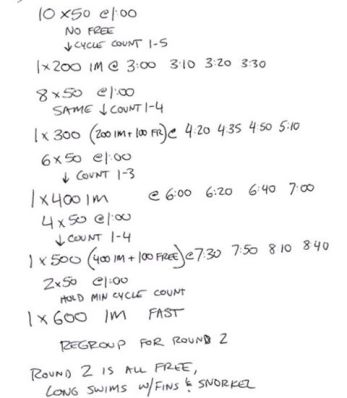 10 x 50 @ 1:00
NO FREE
↓ CYCLE COUNT 1-5
1 x 200 IM @ 3:00 3:10 3:20 3:30
8 x 50 @ 1:00
SAME ↓ COUNT 1-4
1 x 300 (200 IM + 100 FR) @ 4:20 4:35 4:50 5:10
6 x 50 @ 1:00
↓ COUNT 1-3
1 x 400 IM @ 6:00 6:20 6:40 7:00
4 x 50 @ 1:00
↓ COUNT 1-4
1 x 500 (400 IM + 100 FREE) @ 7:30 7:50 8 10 8 40
2 x 50 @ 1:00
HOLD MIN CYCLE COUNT
1 x 600 IM FAST
REGROUP FOR ROUND 2
ROUND 2 IS ALL FREE,
LONG SWIMS W/ FINS & SNORKEL